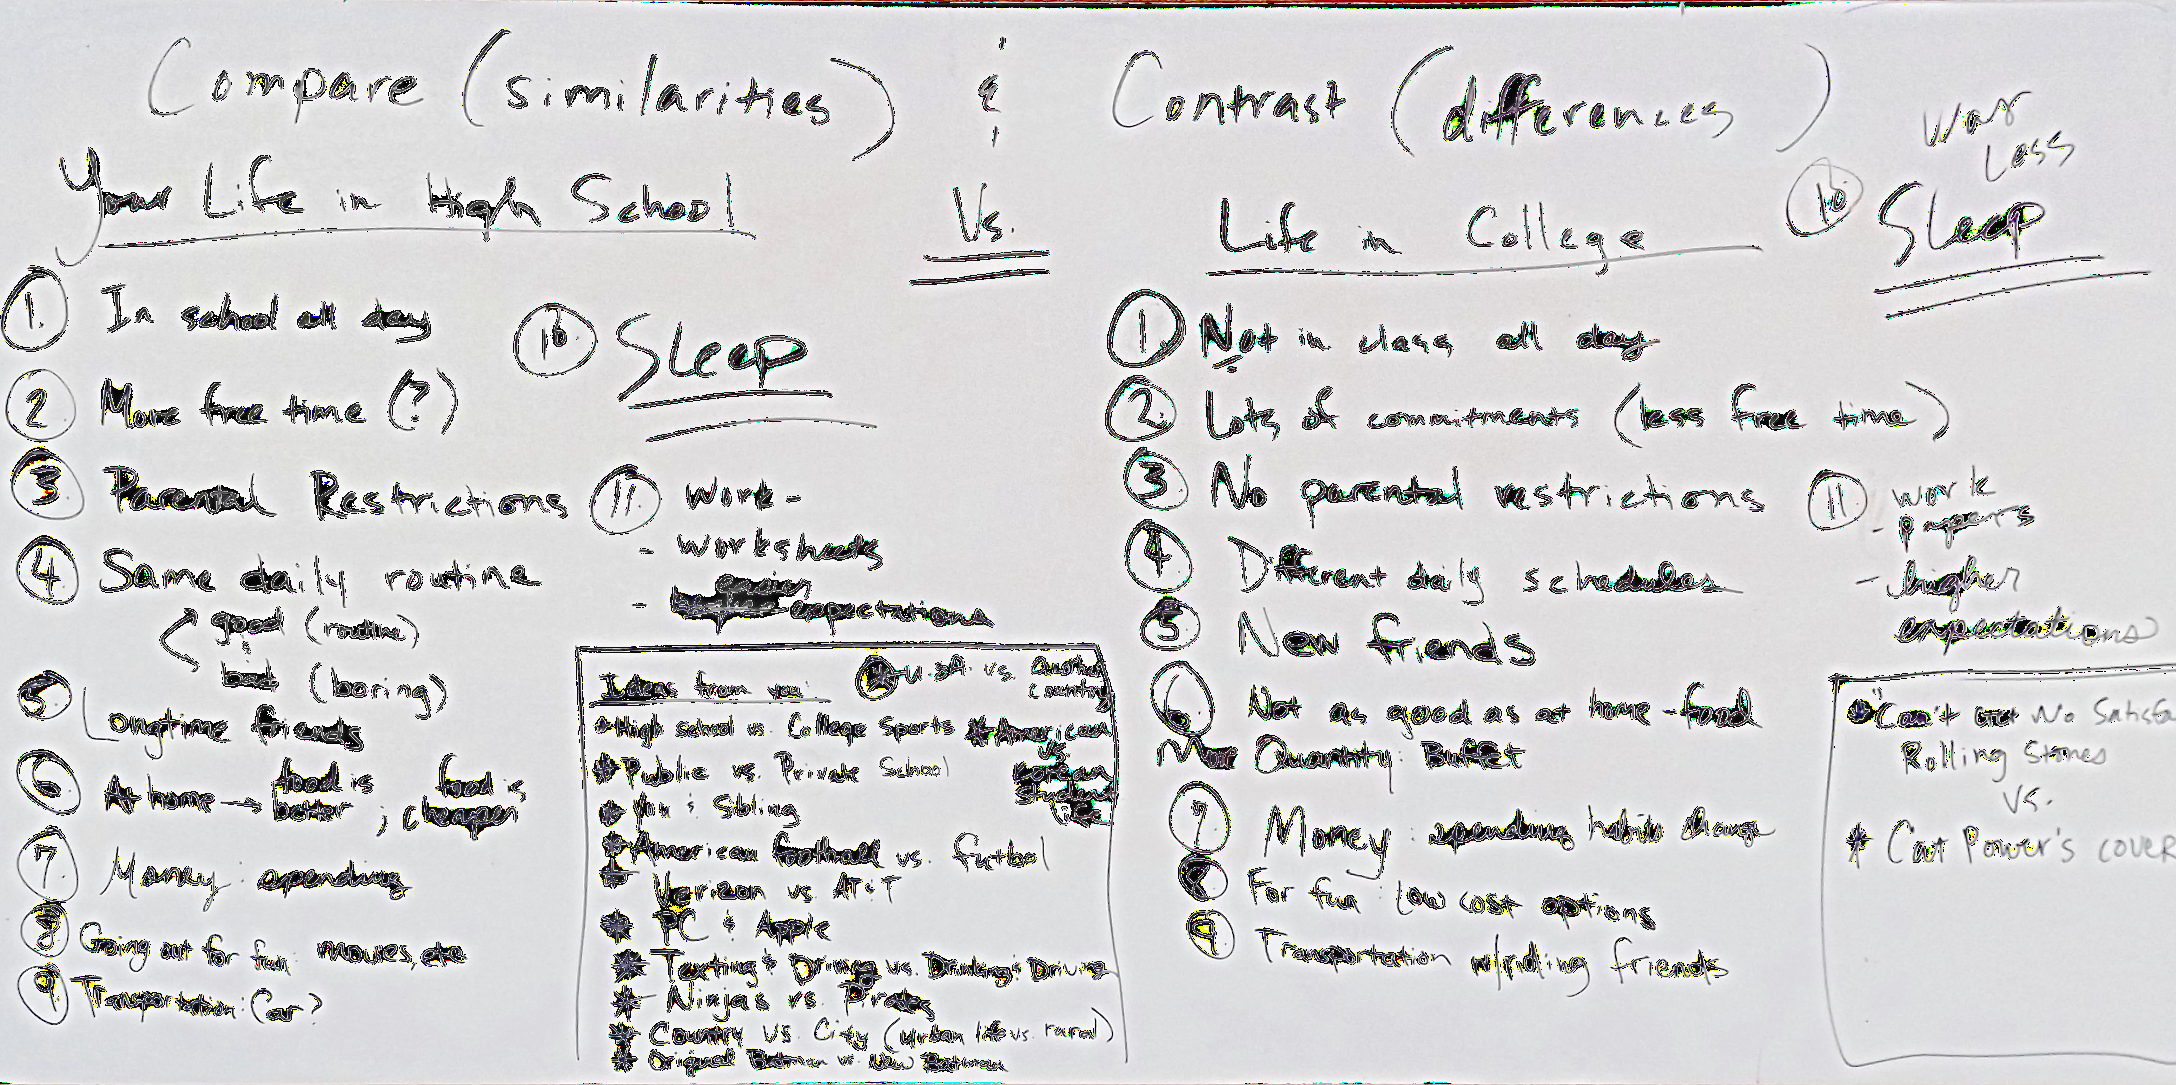 Compare (similarities) & Contrast (differences)
Your Life in High School
Vs.
Life in College
1. In school all day
2 More free time (?)
3. Parental Restrictions
4 Same daily routine
good (routine)
bad (boring)
5 Longtime friends
6 At home → food is better ; food is cheaper
7. Money: spending
8 Going out for fun: movies, etc
9 Transportation: Car?
10 Sleep
11. Work -
- worksheets
- easier expectations
Ideas from you:
* U.S.A. vs. Another Country
* High school vs. College Sports
* American vs Korean Student
* Public vs. Private School
* You & Sibling
* American football vs. futbol
* Verizon vs. AT&T
* PC & Apple
* Texting & Driving vs. Drinking & Driving
* Ninjas vs. Pirates
* Country vs. City (urban life vs. rural)
* Original Batman vs. New Batman
1 Not in class all day
2. Lots of commitments (less free time)
3 No parental restrictions
4 Different daily schedules
5 New friends
6 Not as good as at home - food
More Quantity: Buffet
7 Money: spending habits change
8 For fun: low cost options
9 Transportation w/riding friends
10 Sleep
Way Less
11 work
- papers
- higher expectations
* "Can't Get No Satisfa
Rolling Stones
vs.
* Cat Power's cover